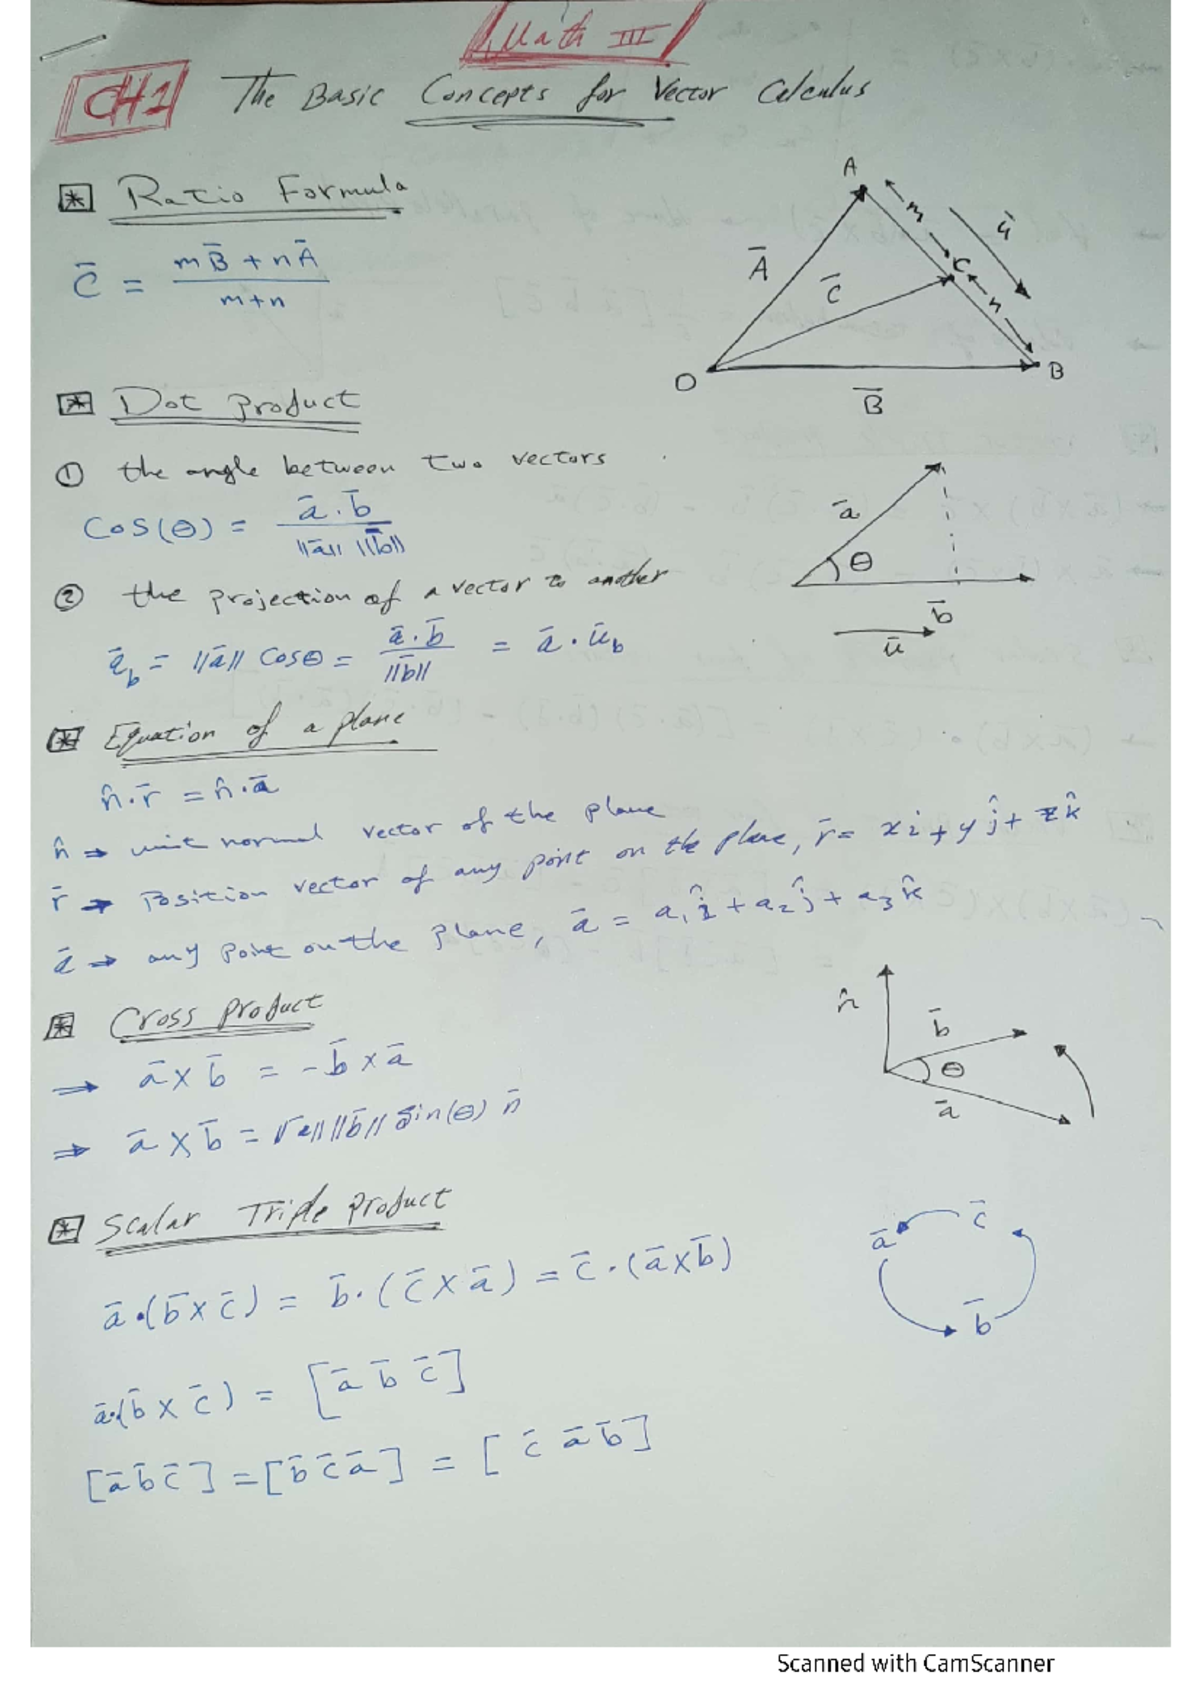 Math III
CH1 The Basic Concepts for Vector Calculus
* Ratio Formula
C̄ = (mB̄ + nĀ) / (m+n)
A
m
ū
C
n
Ā
C̄
O
B
B̄
* Dot product
① the angle between two vectors
Cos(θ) = (ā . b̄) / (||ā|| ||b̄||)
ā
θ
b̄
ū
② the projection of a vector to another
ā_b = ||ā|| Cosθ = (ā . b̄) / ||b̄|| = ā . ū_b
* Equation of a plane
n̂ . r̄ = n̂ . ā
n̂ → unit normal vector of the plane
r̄ → Position vector of any point on the plane, r̄ = xi + yĵ + zk̂
ā → any point on the plane, ā = a₁î + a₂ĵ + a₃k̂
* Cross product
⇒ ā × b̄ = - b̄ × ā
⇒ ā × b̄ = ||a|| ||b̄|| Sin(θ) n̄
n̂
b̄
θ
ā
* Scalar Triple product
ā . (b̄ × c̄) = b̄ . (c̄ × ā) = c̄ . (ā × b̄)
ā
c̄
b̄
ā . (b̄ × c̄) = [ā b̄ c̄]
[ā b̄ c̄] = [b̄ c̄ ā] = [c̄ ā b̄]
Scanned with CamScanner